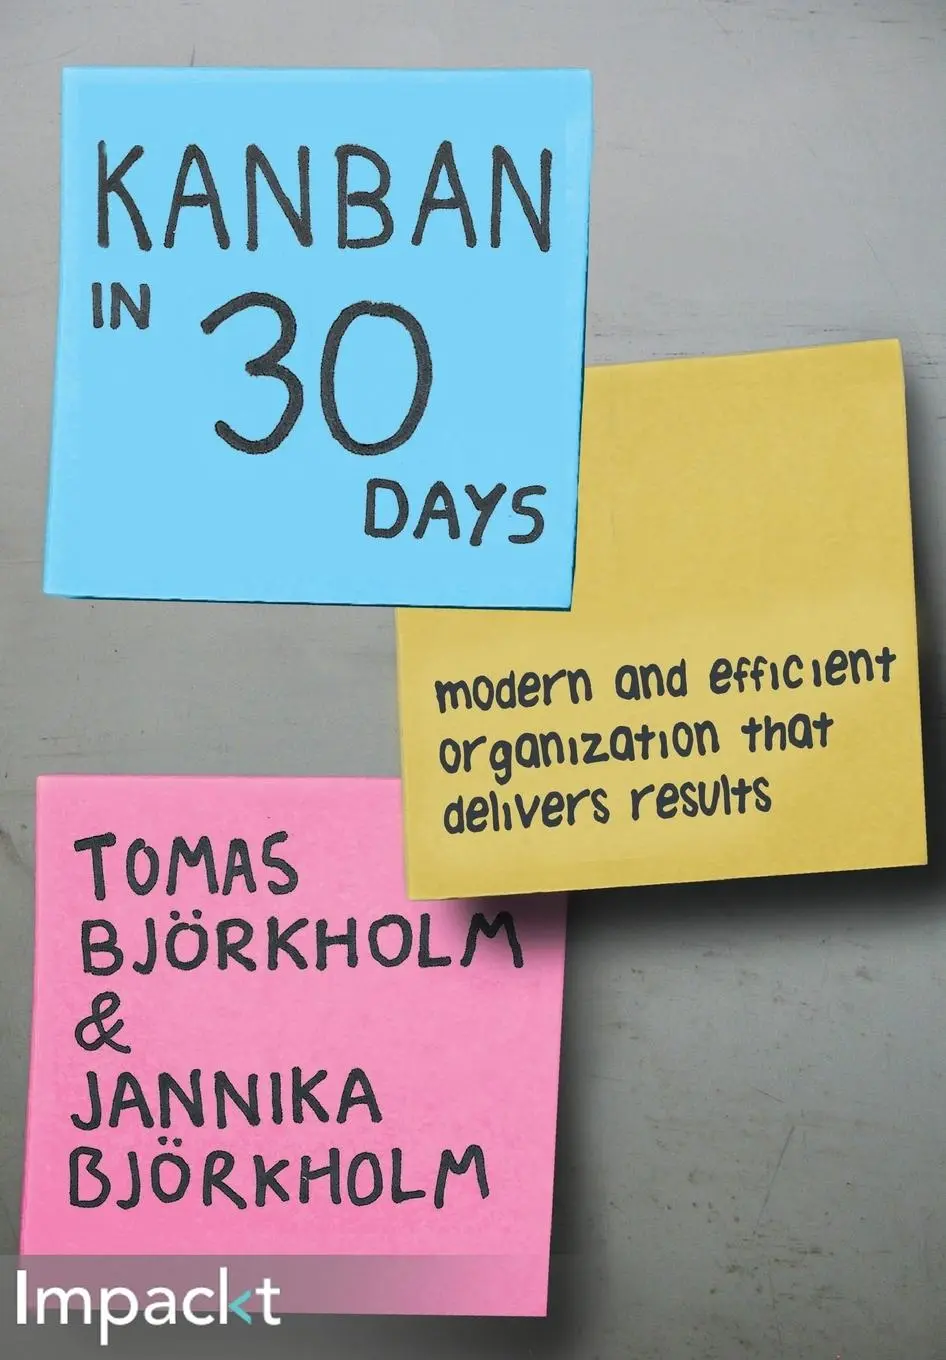 KANBAN
IN 30
DAYS
modern and efficient
organization that
delivers results
TOMAS
BJÖRKHOLM
&
JANNIKA
BJÖRKHOLM
Impackt